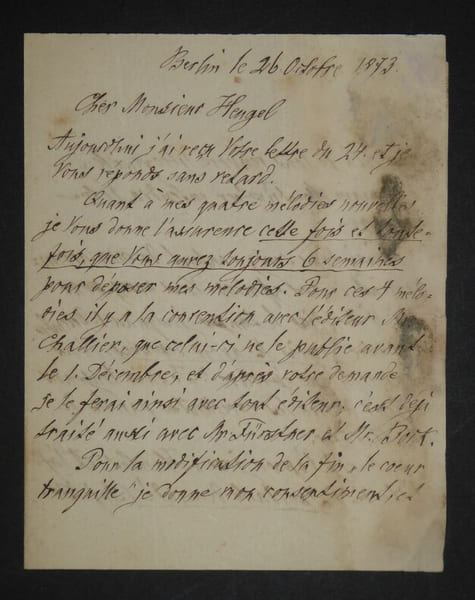 Berlin le 26 Octobre 1873.
Cher Monsieur Hengel
Aujourdhui j'ai reçu Votre lettre du 24. et je
Vous réponds sans retard.
Quant à mes quatre mélodies nouvelles
je Vous donne l'assurence cette fois et toute-
fois, que Vous aurez toujours 6 semaines
pour déposer mes mélodies. Pour ces 4 mélo-
dies il y a la convention avec l'éditeur Mr.
Challier, que celui-ci ne le publie avant
le 1. Décembre, et d'après votre demande
je le ferai ainsi avec tout éditeur, c'est déjà
traité aussi avec Mr Fürstner et Mr. Bock.
Pour la modification de la fin „le coeur
tranquille" je donne mon consentiment, et